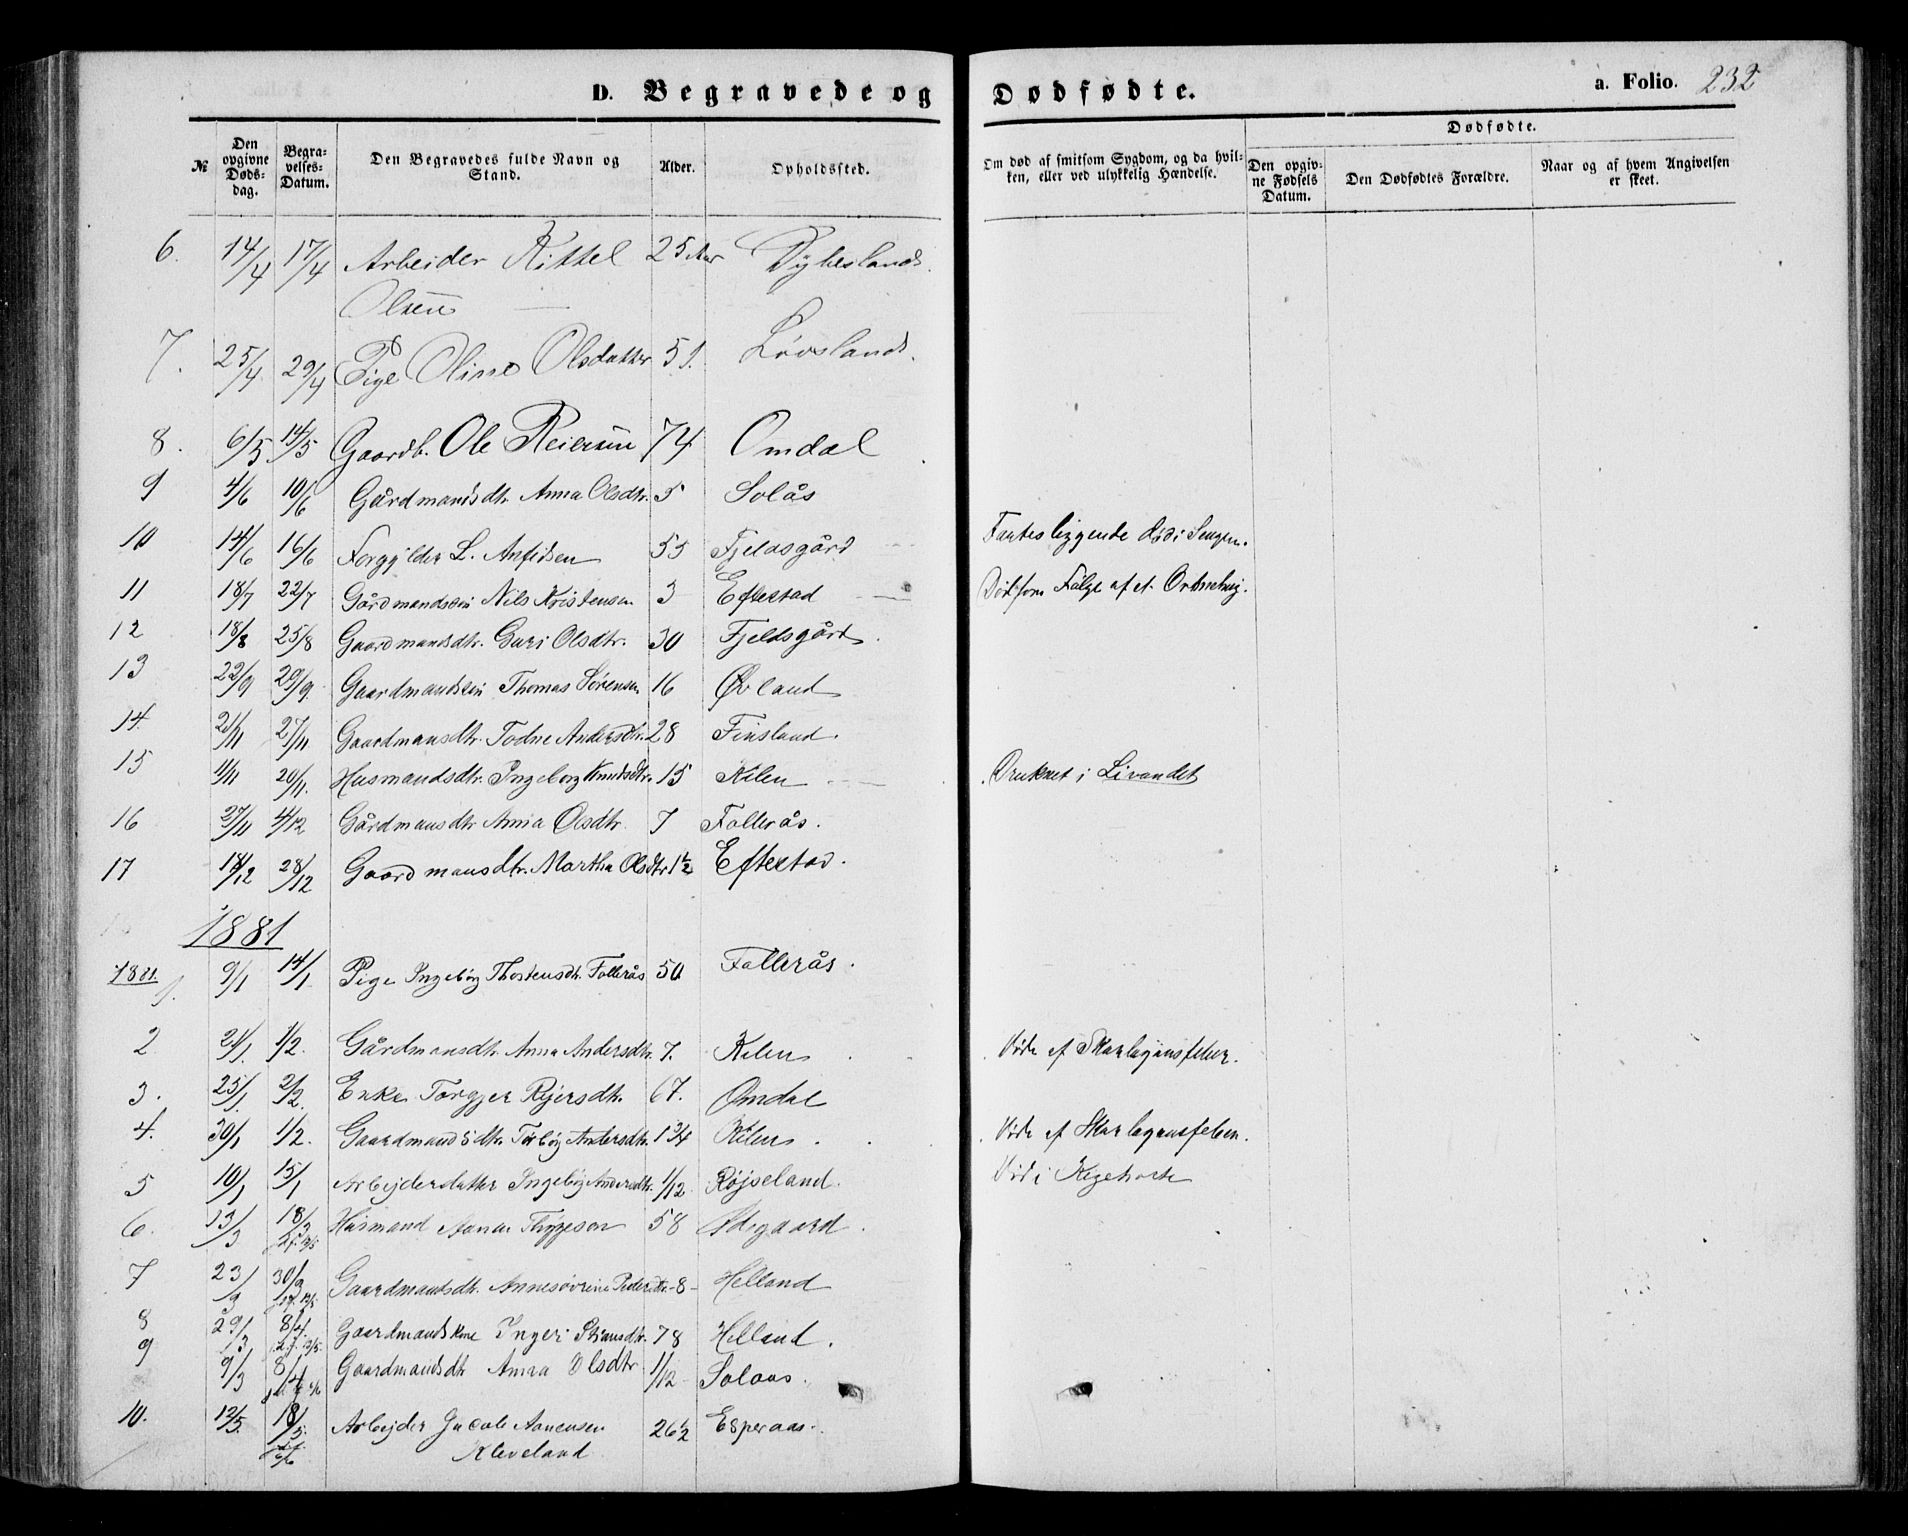 D. Begravede og Dødfødte. a. Folio. 232
№ Den opgivne Døds-dag. Begra-velses-Datum. Den Begravedes fulde Navn og Stand. Alder. Opholdssted. Om død af smitsom Sygdom, og da hvil-ken, eller ved ulykkelig Hændelse. Dødfødte. Den opgiv-ne Fødsels Datum. Den Dødfødtes Forældre. Naar og af hvem Angivelsen er skeet.
6. 14/4 17/4 Arbeider Kittel 25 Aar Dybesland.
Olsen
7. 25/4 29/4 Pige Oline Olsdatter 51. Løvsland.
8. 6/5 14/5 Gaardb. Ole Reiersen 74 Omdal
9 4/6 10/6 Gårdmandsdtr. Anna Olsdtr. 5 Solås
10 14/6 16/6 Forgylder L. Anfidsen 55 Fjeldsgård Fantes liggende død i Sengen.
11 18/7 22/7 Gårdmandssøn Nils Kristensen 3 Eftestad Død som Følge af et
12 18/8 25/8 Gaardmandsdtr. Guri Olsdtr. 30 Fjeldsgård.
13 22/9 29/9 Gaardmandssøn Thomas Sørensen 16 Øvland
14. 21/11 27/11 Gaardmansdtr. Todne Andersdtr. 28 Finsland.
15 11/11 20/11. Husmandsdtr. Ingeborg Knudsdtr. 15 Kilen Druknet i Livandet
16 27/11 4/12 Gårdmansdtr Anna Olsdtr. 7 Follerås.
17 18/12 28/12 Gaardmansdtr. Martha Olsdtr 1½ Eftestad.
1881
1881. 1. 9/1 14/1 Pige Ingebørg Thostensdtr. Follerås 50 Follerås.
2 21/1. 1/2. Gårdmansdtr. Anna Andersdtr. 7. Kilen Døde af Skarlagensfeber.
3. 25/1. 2/2. Enke Torgjer Rejersdtr. 67. Omdal
4. 30/1 1/2. Gaardmandsdtr. Torbørg Andersdtr. 1 3/4 Kilen. Døde af Skarlagensfeber.
5 10/1 15/1 Arbejderdatter Ingebørg Andersdtr. 1/12 Røjseland. Død i Kigehoste
6. 13/3 18/3 Husmand Aanen Thygeson 58 Ødegaard.
7 23/3 30/3 Gaardmandsdtr. Annesøvrine Pedersdtr. 8 Helland
8 29/3 8/4. Gaardmandskone Ingeri Stiansdtr. 78 Helland.
9 9/3 8/4 Gaardmandsdtr Anna Olsdtr 1/12 Solaas.
10. 12/5. 18/5. Arbejder Jacob Aanensen 26½ Esperaas.
Kleveland